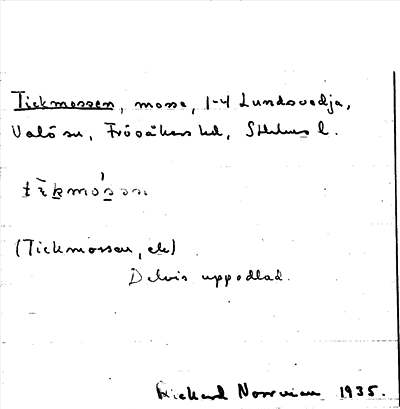 Tickmossen, mosse, 1-4 Lundsvedja,
Valö sn, Frösåkers hd, Sthlms l.
(Tickmossen, ek)
Delvis uppodlad.
Rickard Norrvian 1935.